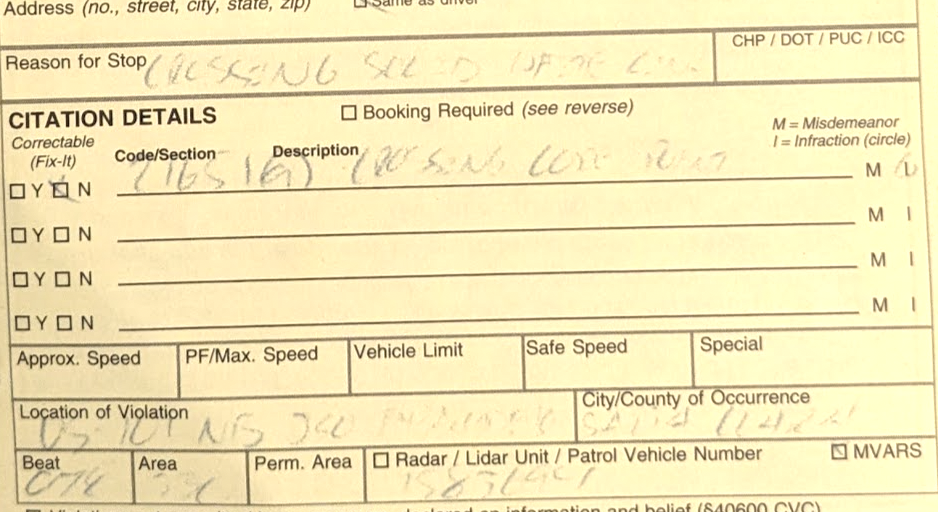 Address (no., street, city, state, zip) Same as driver
Reason for Stop CROSSING SOLID WHITE LINE CHP / DOT / PUC / ICC
CITATION DETAILS ☐ Booking Required (see reverse)
M = Misdemeanor
I = Infraction (circle)
Correctable
(Fix-It)
Code/Section Description
☐ Y ☒ N CROSSING M I
☐ Y ☐ N M I
☐ Y ☐ N M I
☐ Y ☐ N M I
Approx. Speed PF/Max. Speed Vehicle Limit Safe Speed Special
Location of Violation City/County of Occurrence
US-101 N/B SANTA CLARA
Beat Area Perm. Area ☐ Radar / Lidar Unit / Patrol Vehicle Number ☒ MVARS
information and belief (§40600 CVC)